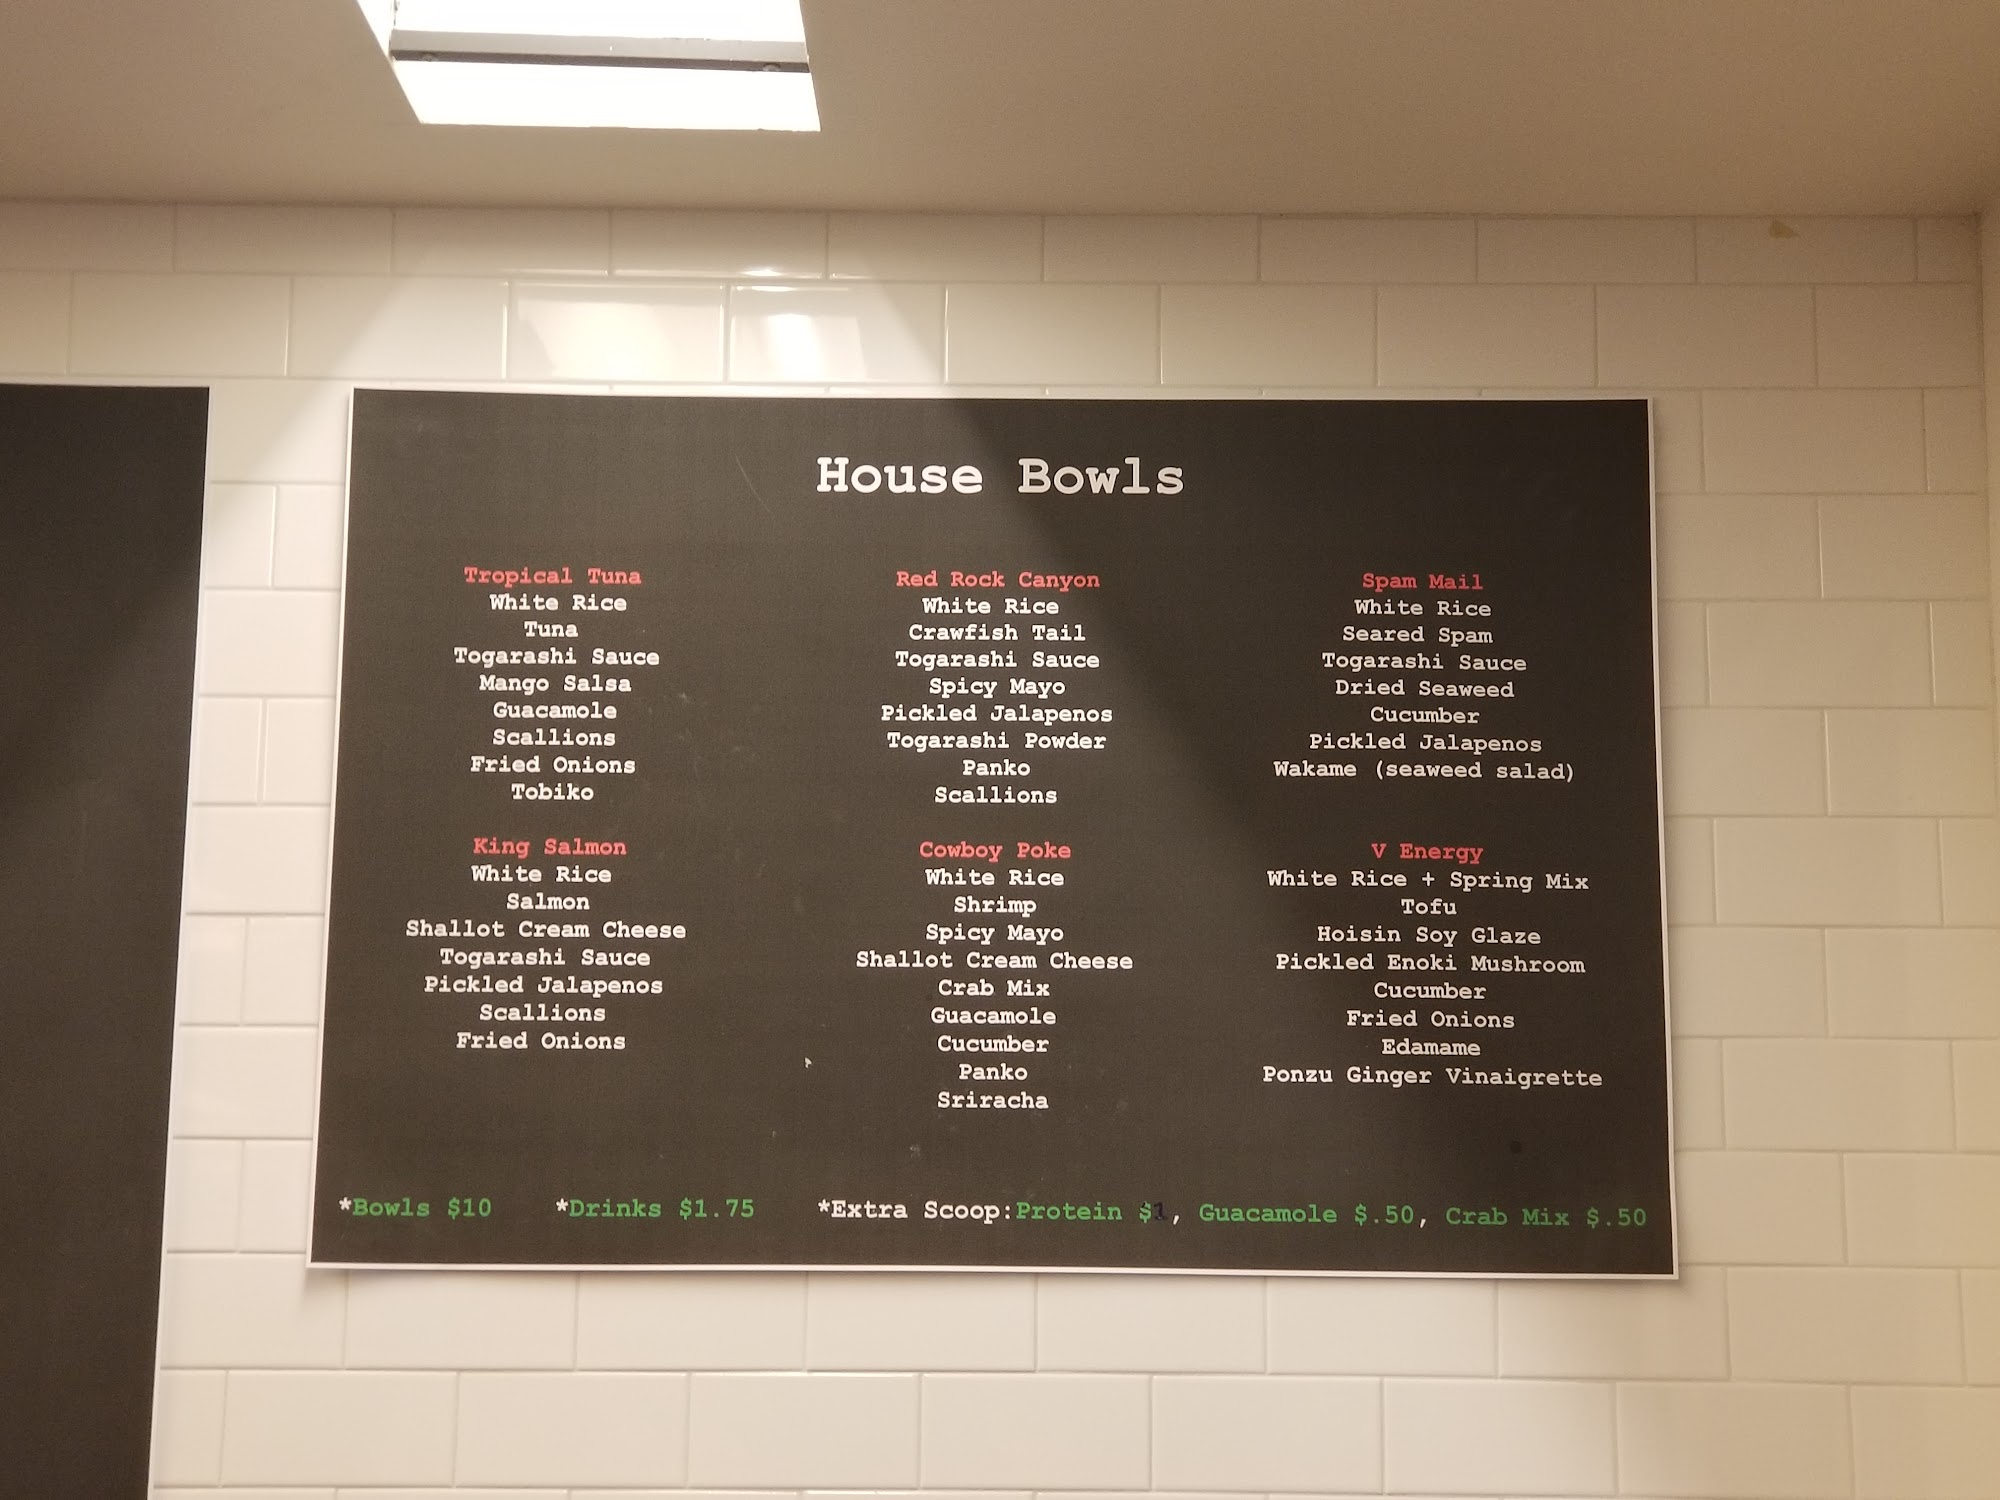 House Bowls
Tropical Tuna
White Rice
Tuna
Togarashi Sauce
Mango Salsa
Guacamole
Scallions
Fried Onions
Tobiko
King Salmon
White Rice
Salmon
Shallot Cream Cheese
Togarashi Sauce
Pickled Jalapenos
Scallions
Fried Onions
Red Rock Canyon
White Rice
Crawfish Tail
Togarashi Sauce
Spicy Mayo
Pickled Jalapenos
Togarashi Powder
Panko
Scallions
Cowboy Poke
White Rice
Shrimp
Spicy Mayo
Shallot Cream Cheese
Crab Mix
Guacamole
Cucumber
Panko
Sriracha
Spam Mail
White Rice
Seared Spam
Togarashi Sauce
Dried Seaweed
Cucumber
Pickled Jalapenos
Wakame (seaweed salad)
V Energy
White Rice + Spring Mix
Tofu
Hoisin Soy Glaze
Pickled Enoki Mushroom
Cucumber
Fried Onions
Edamame
Ponzu Ginger Vinaigrette
*Bowls $10 *Drinks $1.75 *Extra Scoop:Protein $1, Guacamole $.50, Crab Mix $.50